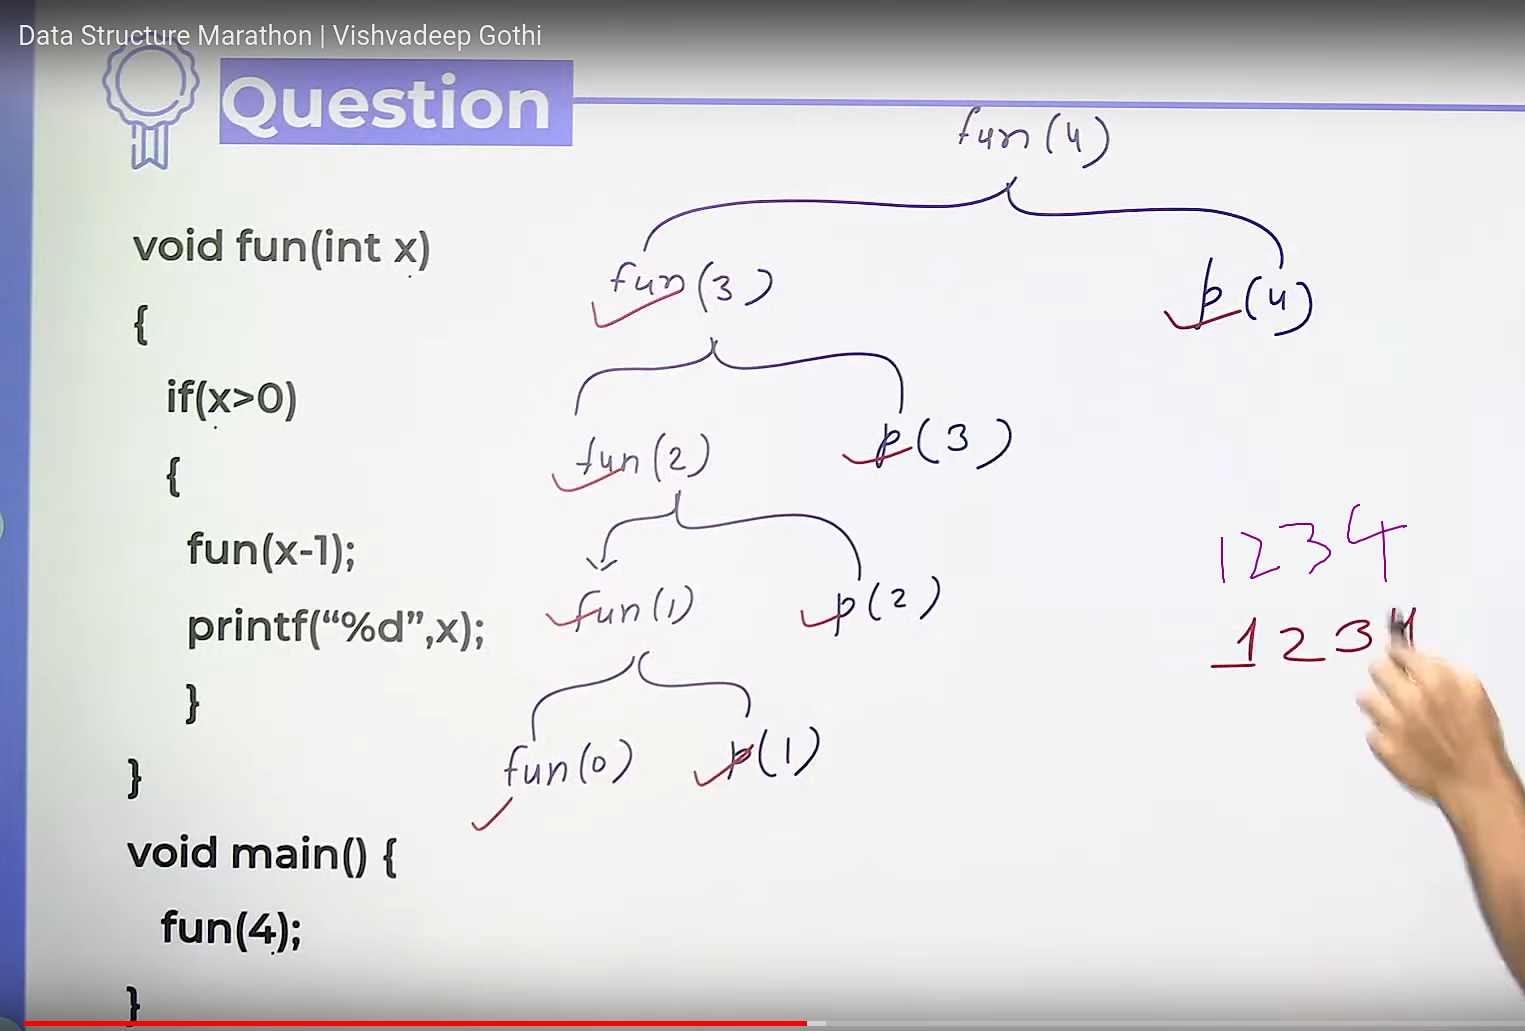 Data Structure Marathon | Vishvadeep Gothi
Question
void fun(int x)
{
if(x>0)
{
fun(x-1);
printf(“%d”,x);
}
}
void main() {
fun(4);
}
fun(4)
fun(3) p(4)
fun(2) p(3)
fun(1) p(2)
fun(0) p(1)
1234
1234